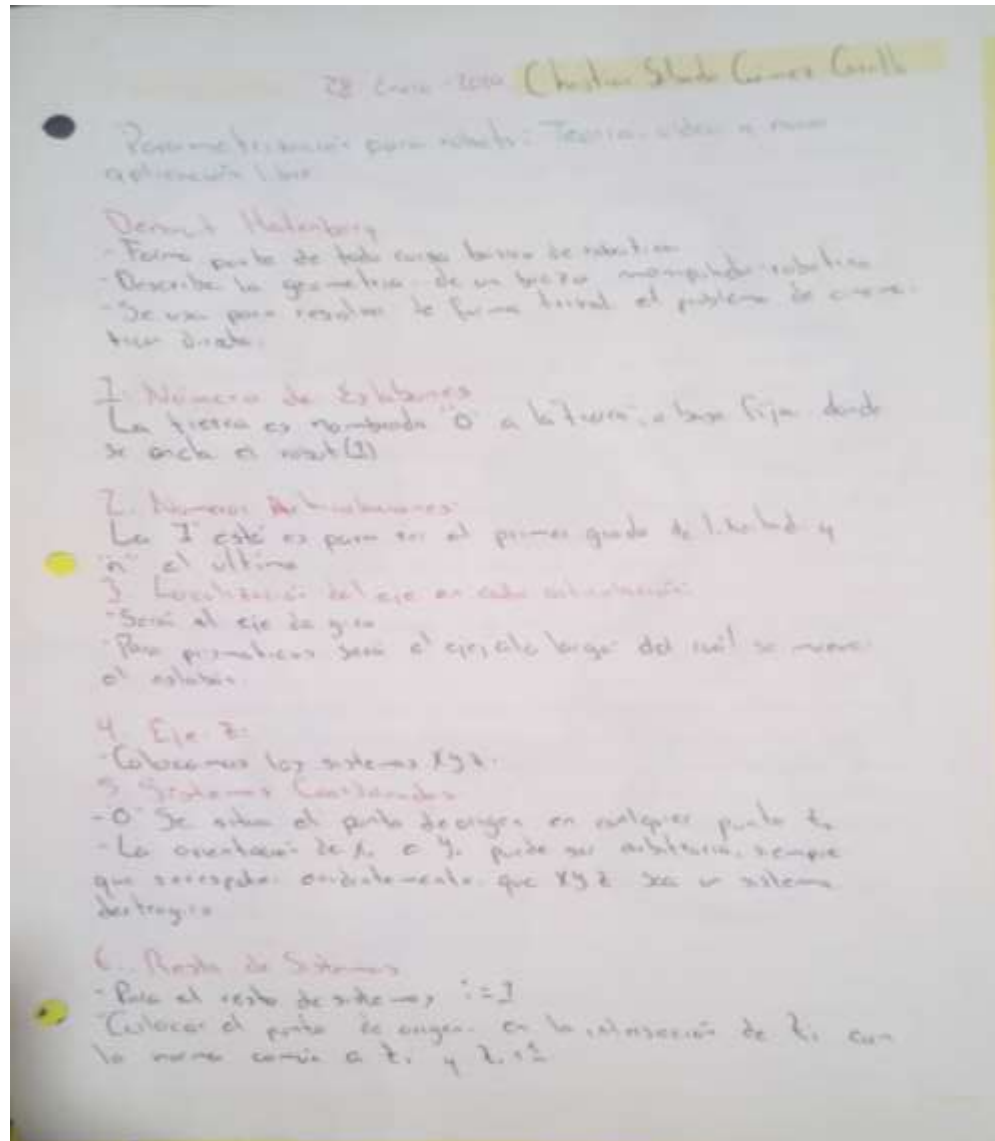 28 Enero
Parametrización para robots: Teoría, video y nueva
aplicación
Denavit Hatenberg
- Forma parte de todo curso básico de robótica
- Describe la geometría de un brazo manipulador robótico
- Se usa para resolver de forma trivial el problema de cinemá-
tica directa.
1. Número de Eslabones
La tierra es nombrada "0" a la tierra, o base fija donde
se ancla el robot (1)
2. Números Articulaciones
La 1 está es para ser el primer grado de libertad y
"n" el último
3. Localización del eje en cada articulación
- Será el eje de giro
- Para prismáticas será el eje a lo largo del cuál se mueve
el eslabón.
4. Eje Z.
- Colocamos los sistemas XYZ.
5. Sistemas Coordenados
- 0 Se sitúa el punto de origen en cualquier punto
- La orientación de x. o y. puede ser arbitraria, siempre
que se respete evidentemente que XYZ sea un sistema
dextrogiro
6. Resto de Sistemas
- Para el resto de sistemas i=1
- Colocar el punto de origen en la intersección de Zi con
la norma común a Zi y Zi+1